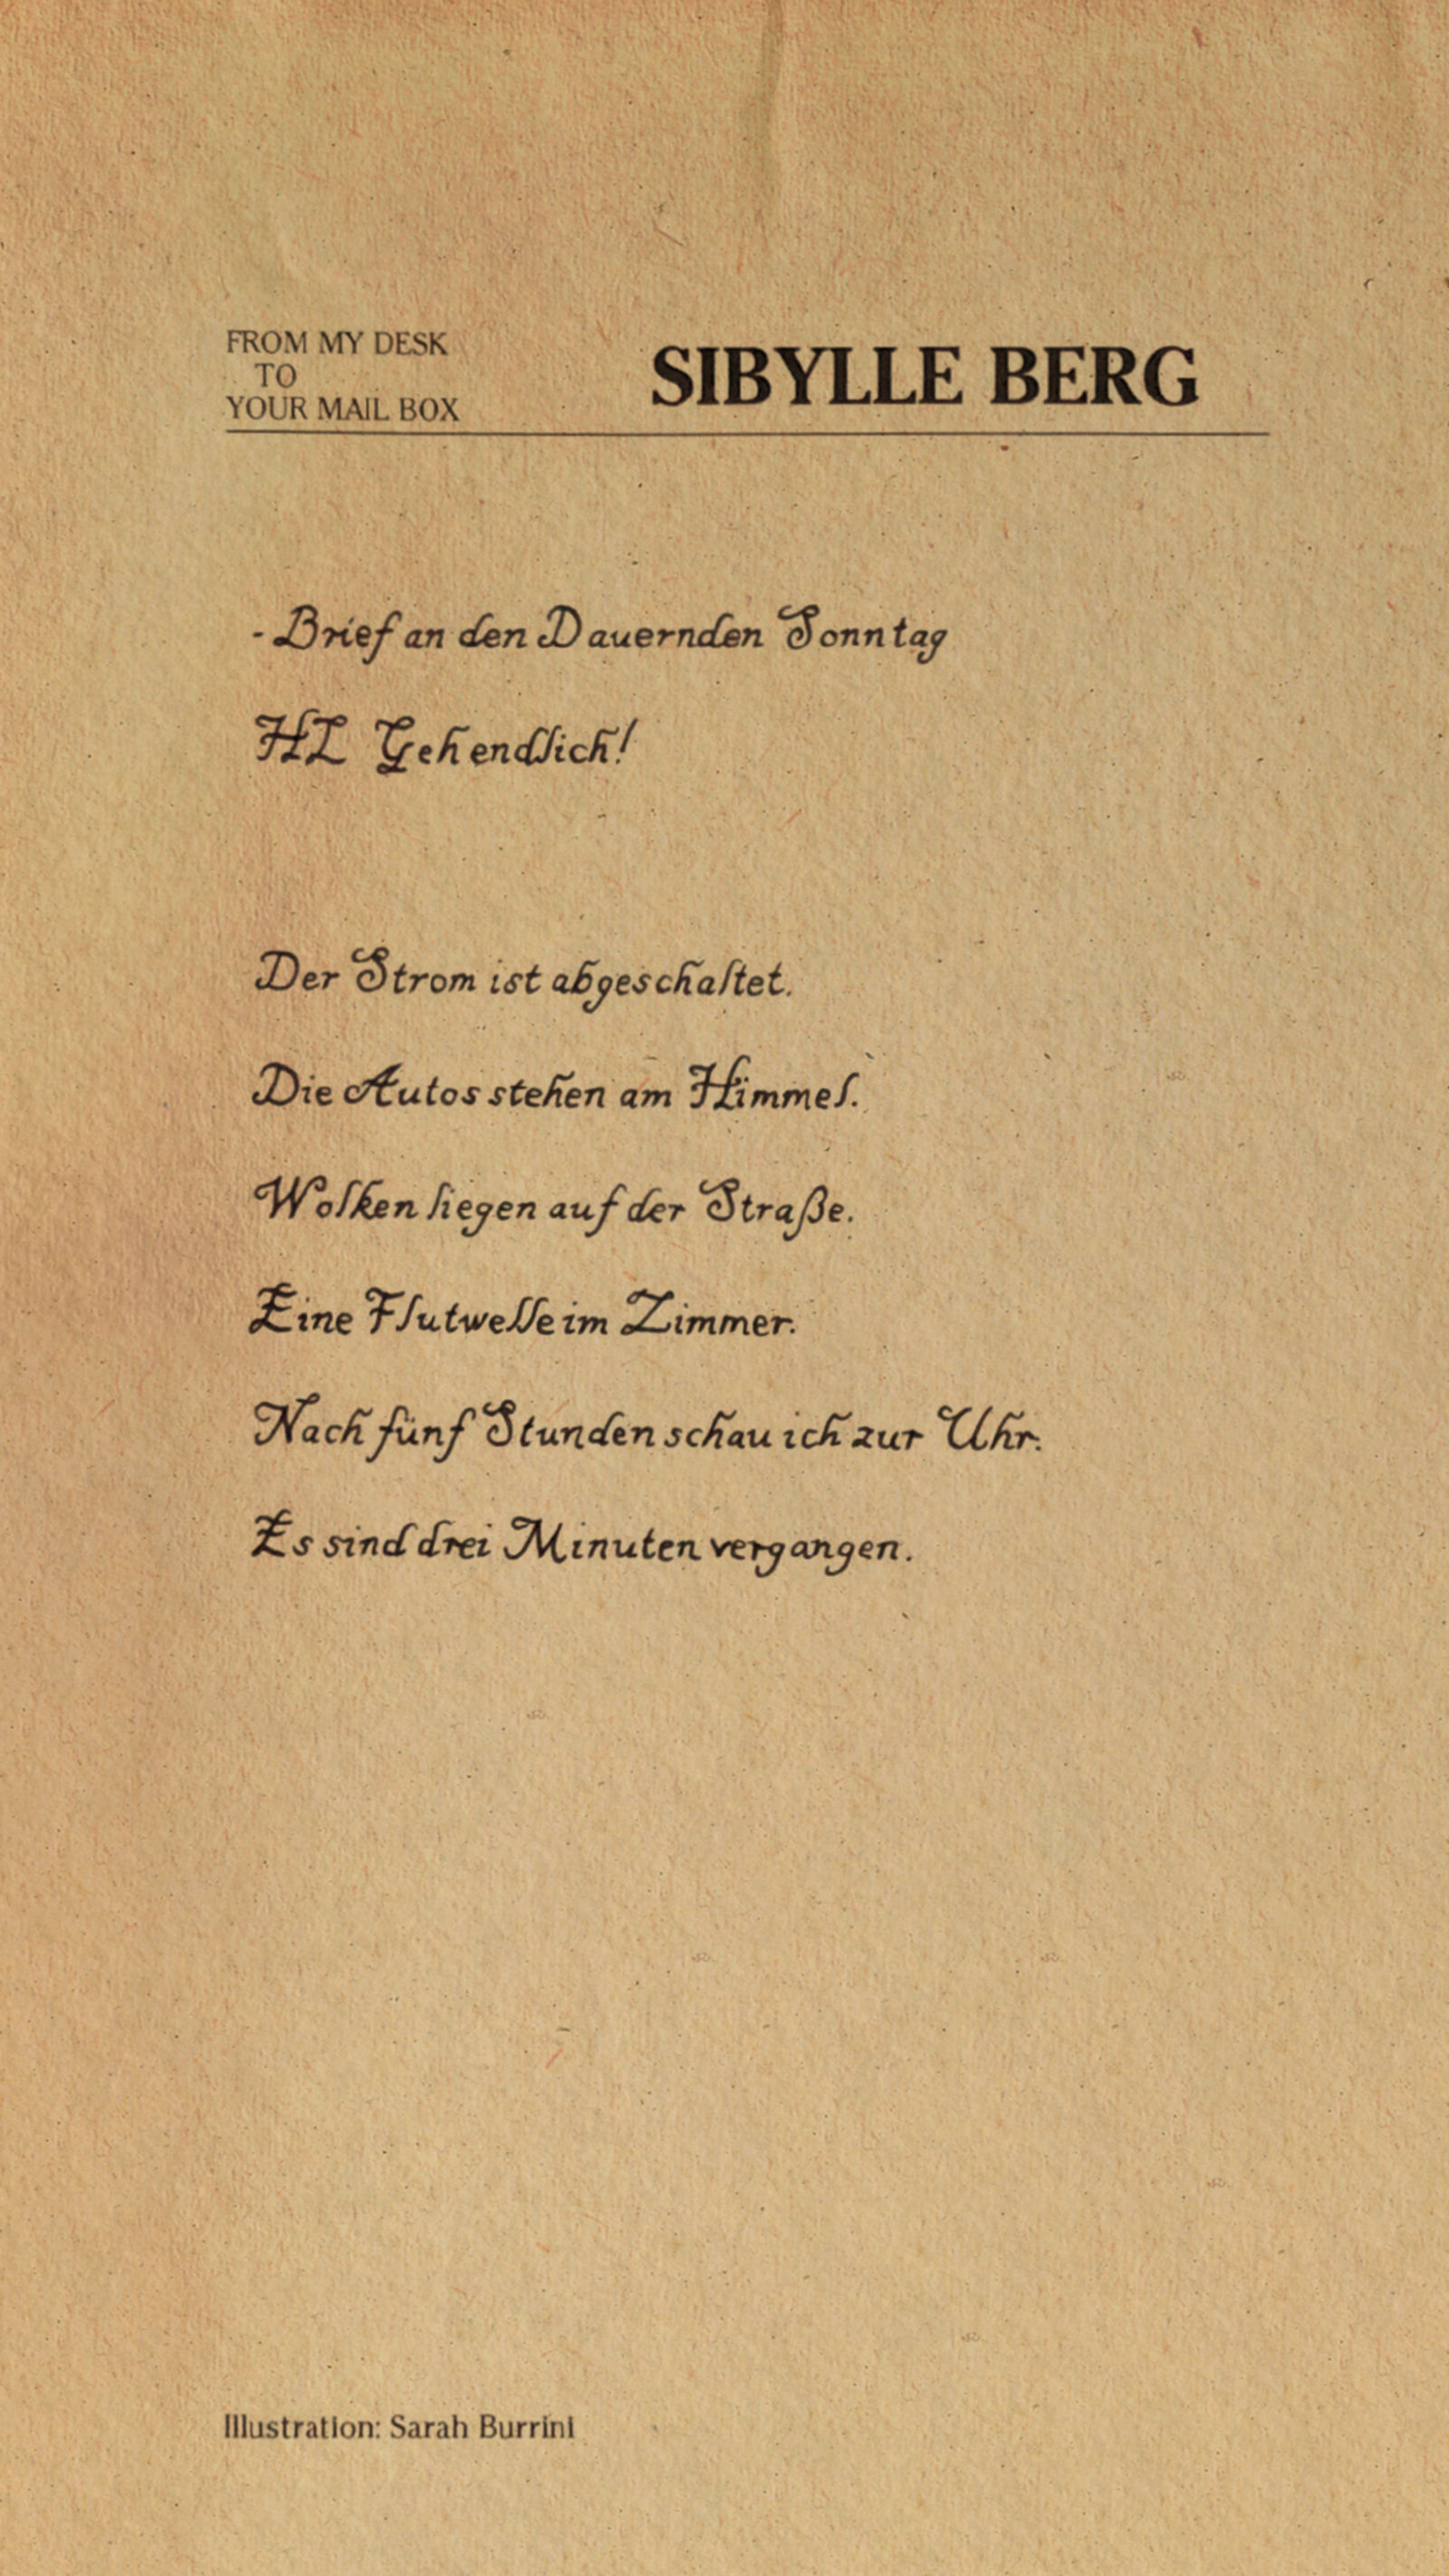 FROM MY DESK
TO
YOUR MAIL BOX
SIBYLLE BERG
- Brief an den Dauernden Sonntag
HI Geh endlich!
Der Strom ist abgeschaltet.
Die Autos stehen am Himmel.
Wolken liegen auf der Straße.
Eine Flutwelle im Zimmer.
Nach fünf Stunden schau ich zur Uhr.
Es sind drei Minuten vergangen.
Illustration: Sarah Burrini